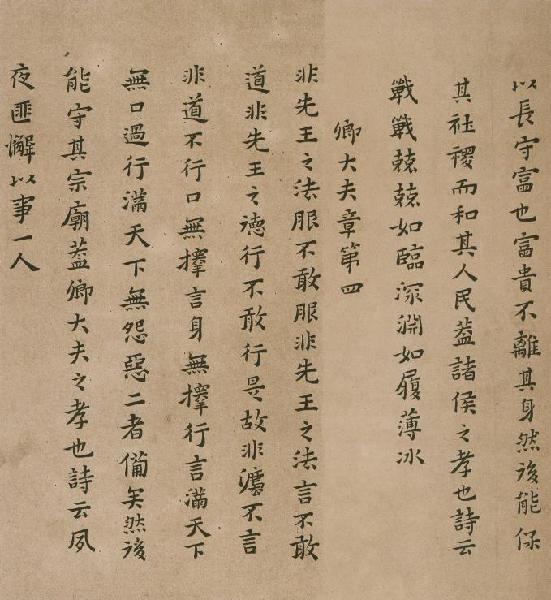 以長守富也富貴不離其身然後能保
其社稷而和其人民蓋諸侯之孝也詩云
戰戰兢兢如臨深淵如履薄冰
卿大夫章第四
非先王之法服不敢服非先王之法言不敢
道非先王之德行不敢行是故非法不言
非道不行口無擇言身無擇行言滿天下
無口過行滿天下無怨惡二者備矣然後
能守其宗廟蓋卿大夫之孝也詩云夙
夜匪懈以事一人